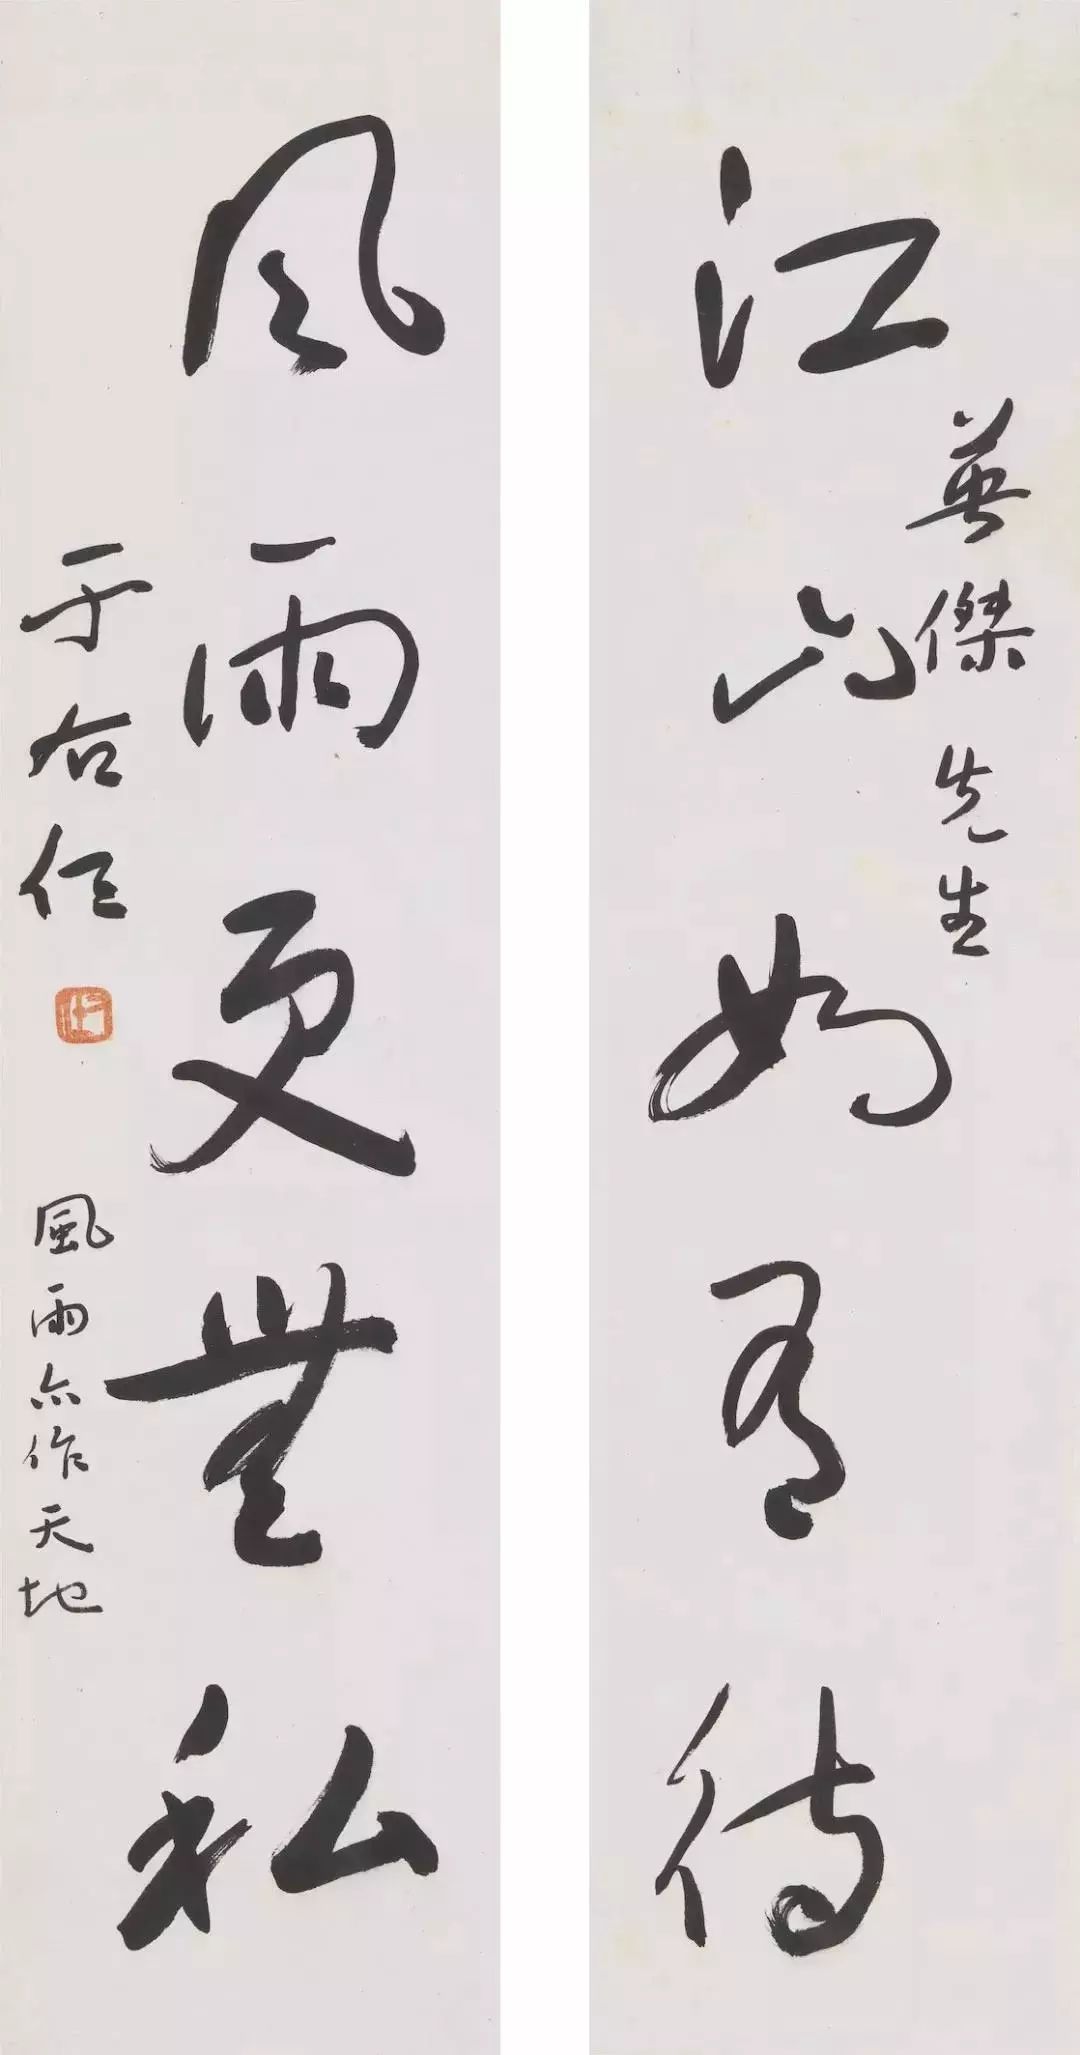 英傑先生
江山如有待
風雨更無私
于右任 風雨亦作天地